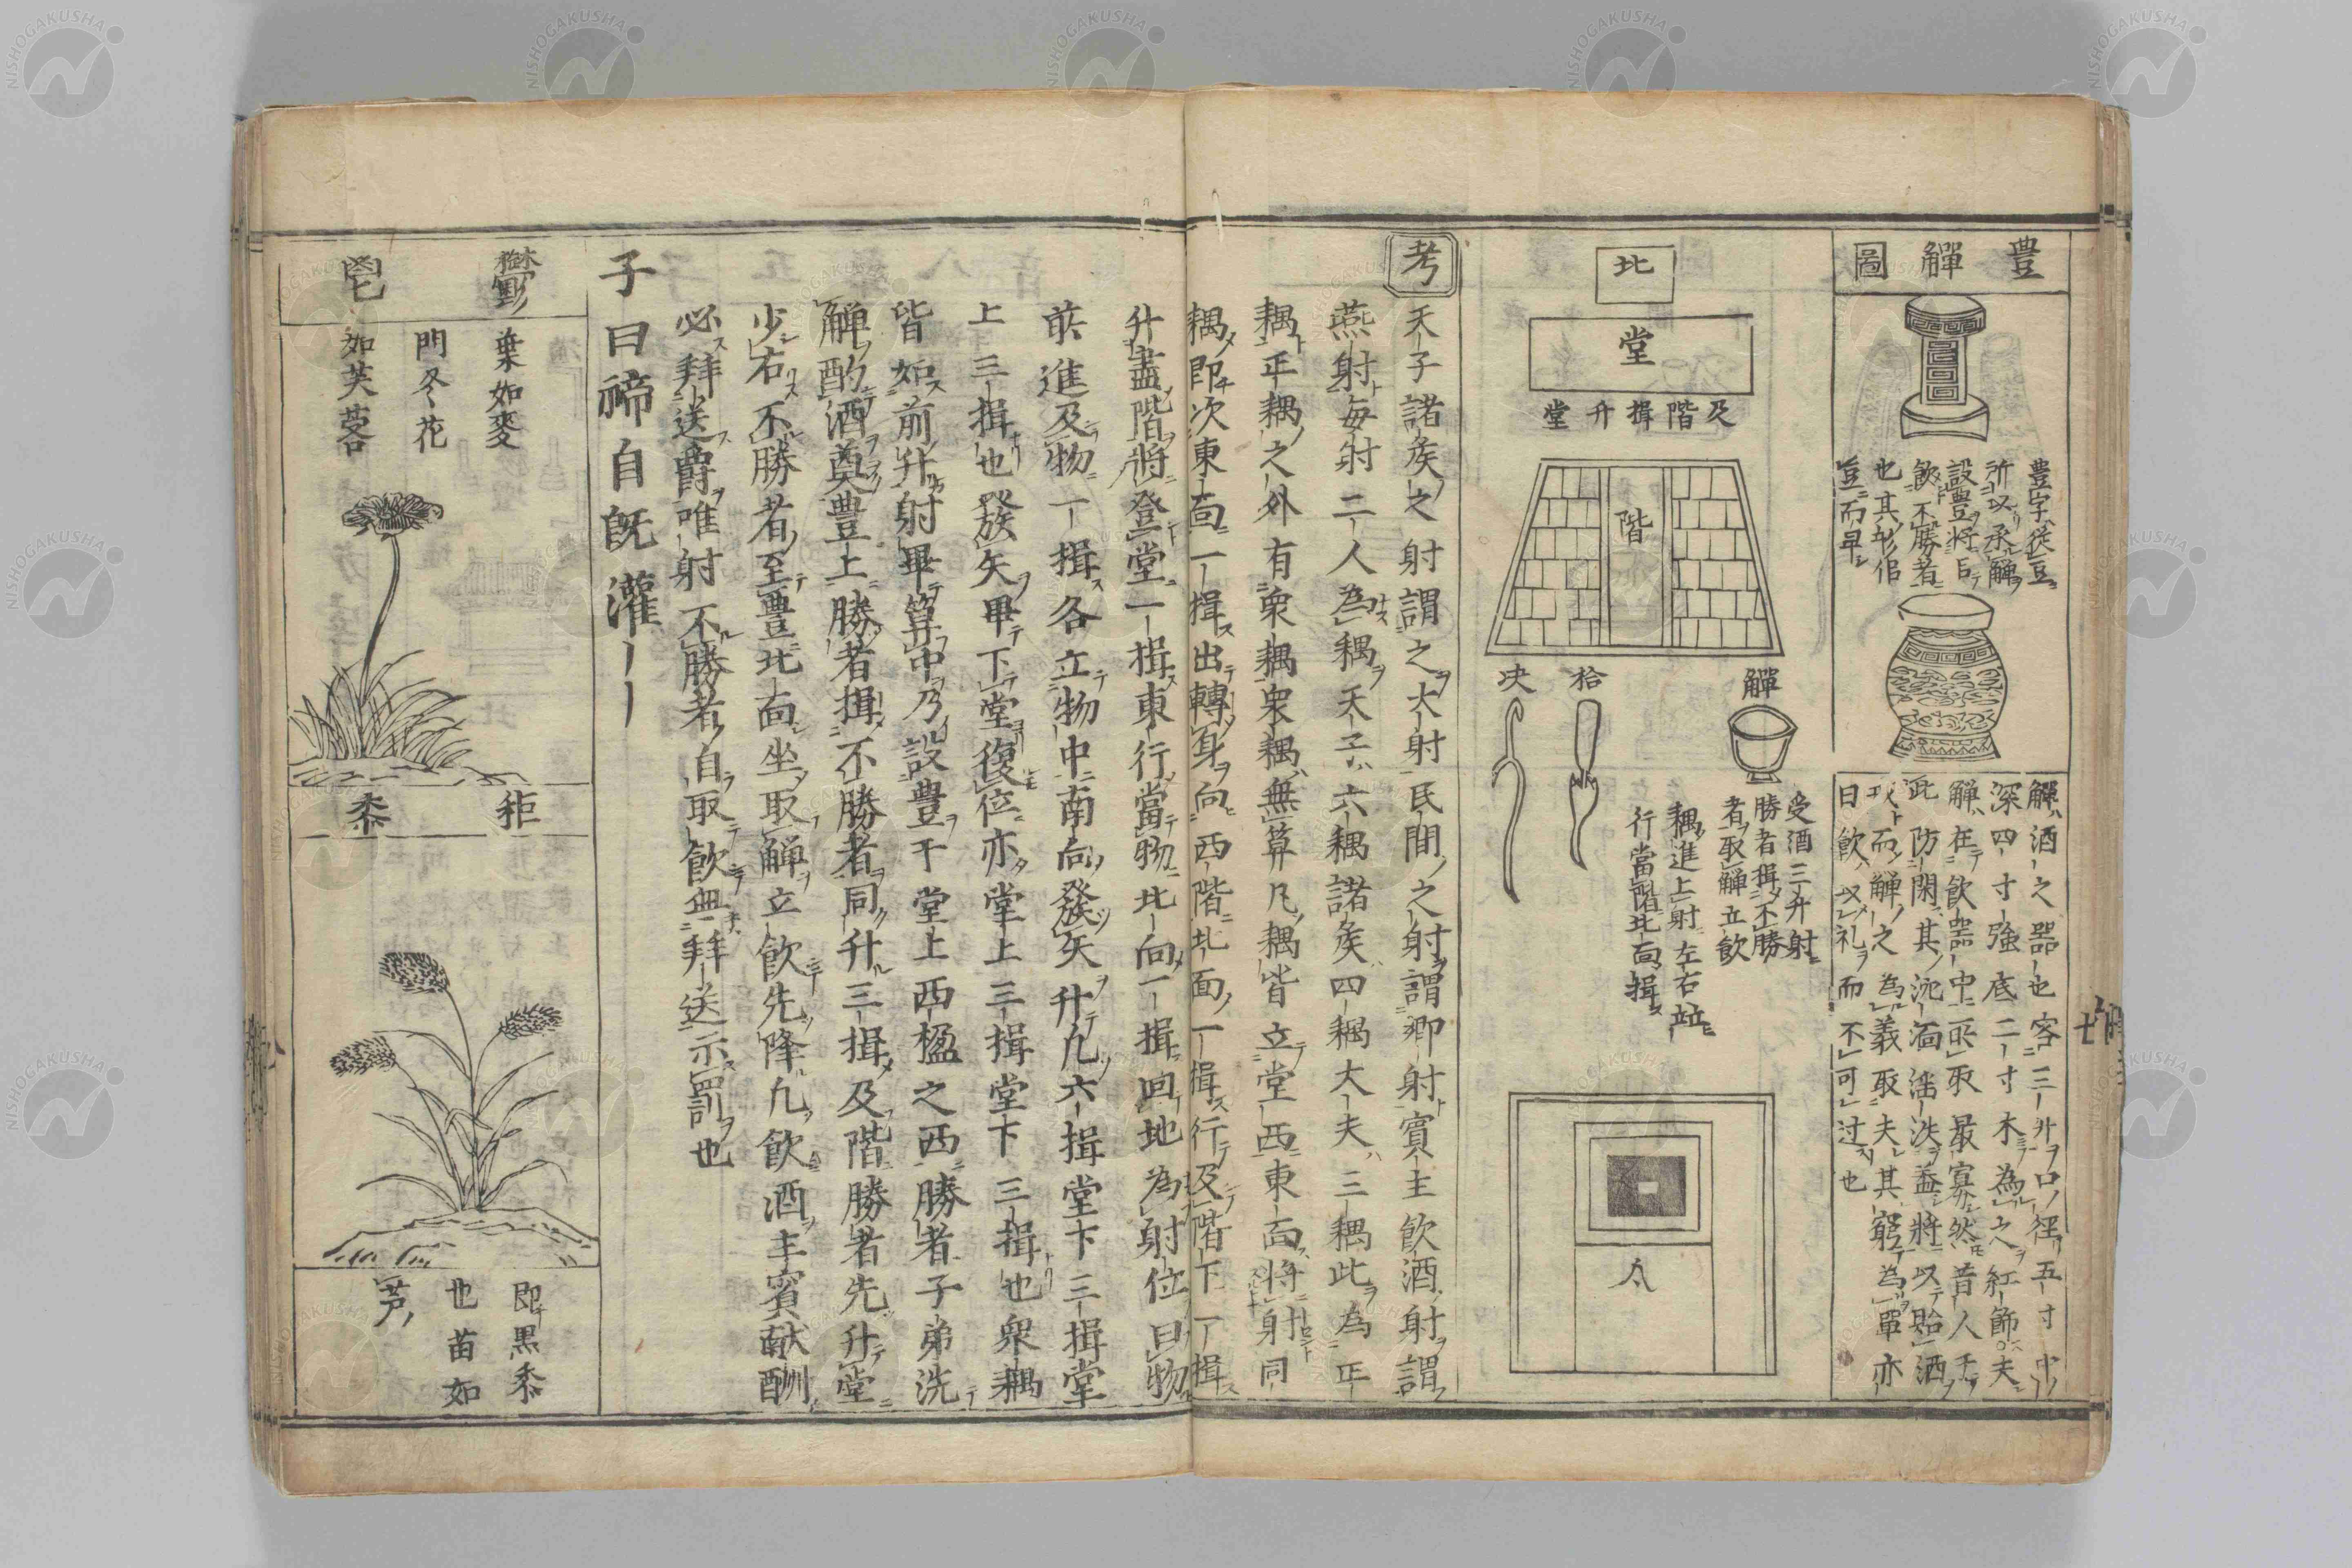 豊觶圖
豊字従豆
所以承觶
設豊将㠯
飲不勝者
也其形侣
豆而卑
觶酒之器也客三升口徑五寸中
深四寸強底二寸木為之紅飾夫
觶在飲器中所取最寡然昔人
防閑其沉湎淫泆盖將以貽酒
而觶之為義取夫其窮為單亦
曰飲以礼而不可过也
北
堂
及階揖升堂
階
觶
拾
决
受酒三升射
勝者揖不勝
者取觶立飲
耦進上射左右竝
行當階北面揖
考
天子諸矦之射謂之大射民間之射謂鄉射賓主飲酒射謂
燕射每射二人為耦天子六耦諸矦四耦大夫三耦此為正
耦正耦之外有衆耦衆耦無算凡耦皆立堂西東面將射同
耦即次東面一揖出轉身向西階北面一揖行及階下一揖
升盡階將登堂一揖東行當物北向一揖回地為射位曰物
前進及物一揖各立物中南向發矢升凢六揖堂下三揖堂
上三揖也發矢畢下堂復位亦堂上三揖堂下三揖也衆耦
皆如前升射畢算中乃設豊于堂上西楹之西勝者子弟洗
觶酌酒奠豊上勝者揖不勝者同升三揖及階勝者先升堂
少右不勝者至豊北面坐取觶立飲先降凢飲酒主賓献酬
必拜送爵唯射不勝者自取飲無拜送示罰也
子曰禘自既灌
鬱
鬯
葉如麥
門冬花
如芙蓉
秬
黍
即黒黍
也苗如
芦